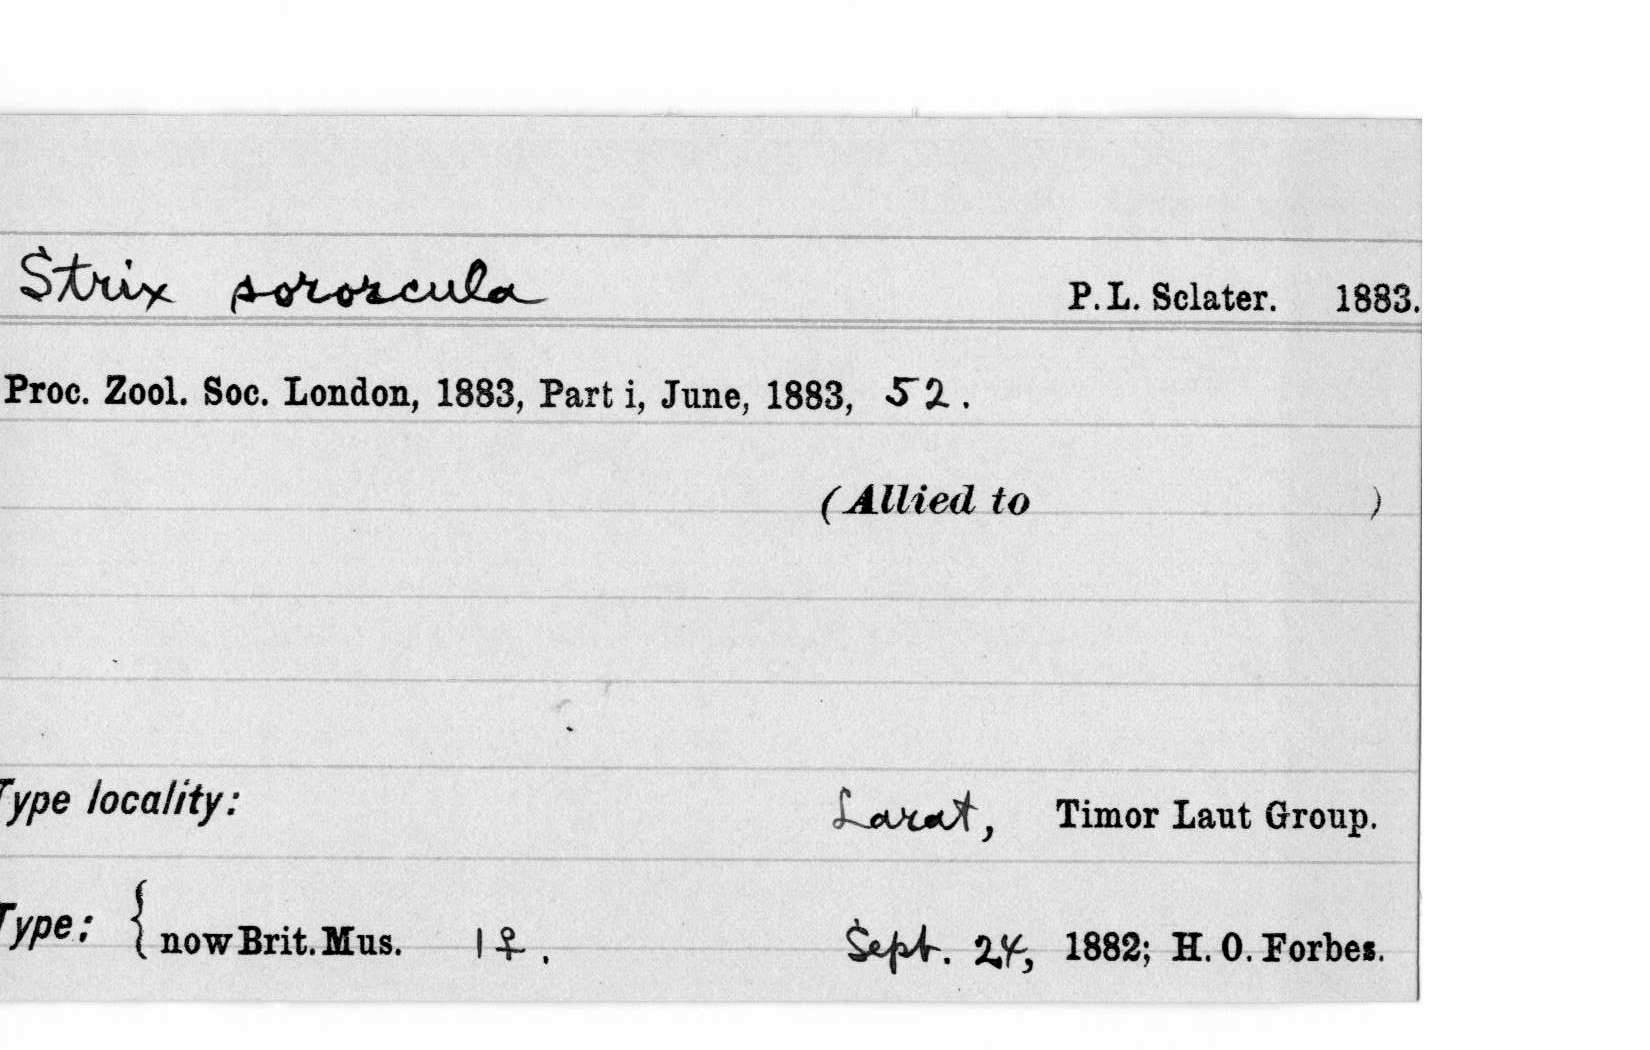 Strix sororcula P. L. Sclater. 1883.
Proc. Zool. Soc. London, 1883, Part i, June, 1883, 52.
(Allied to )
Type locality: Larat, Timor Laut Group.
Type: { now Brit. Mus. 1♀. Sept. 24, 1882; H. O. Forbes.